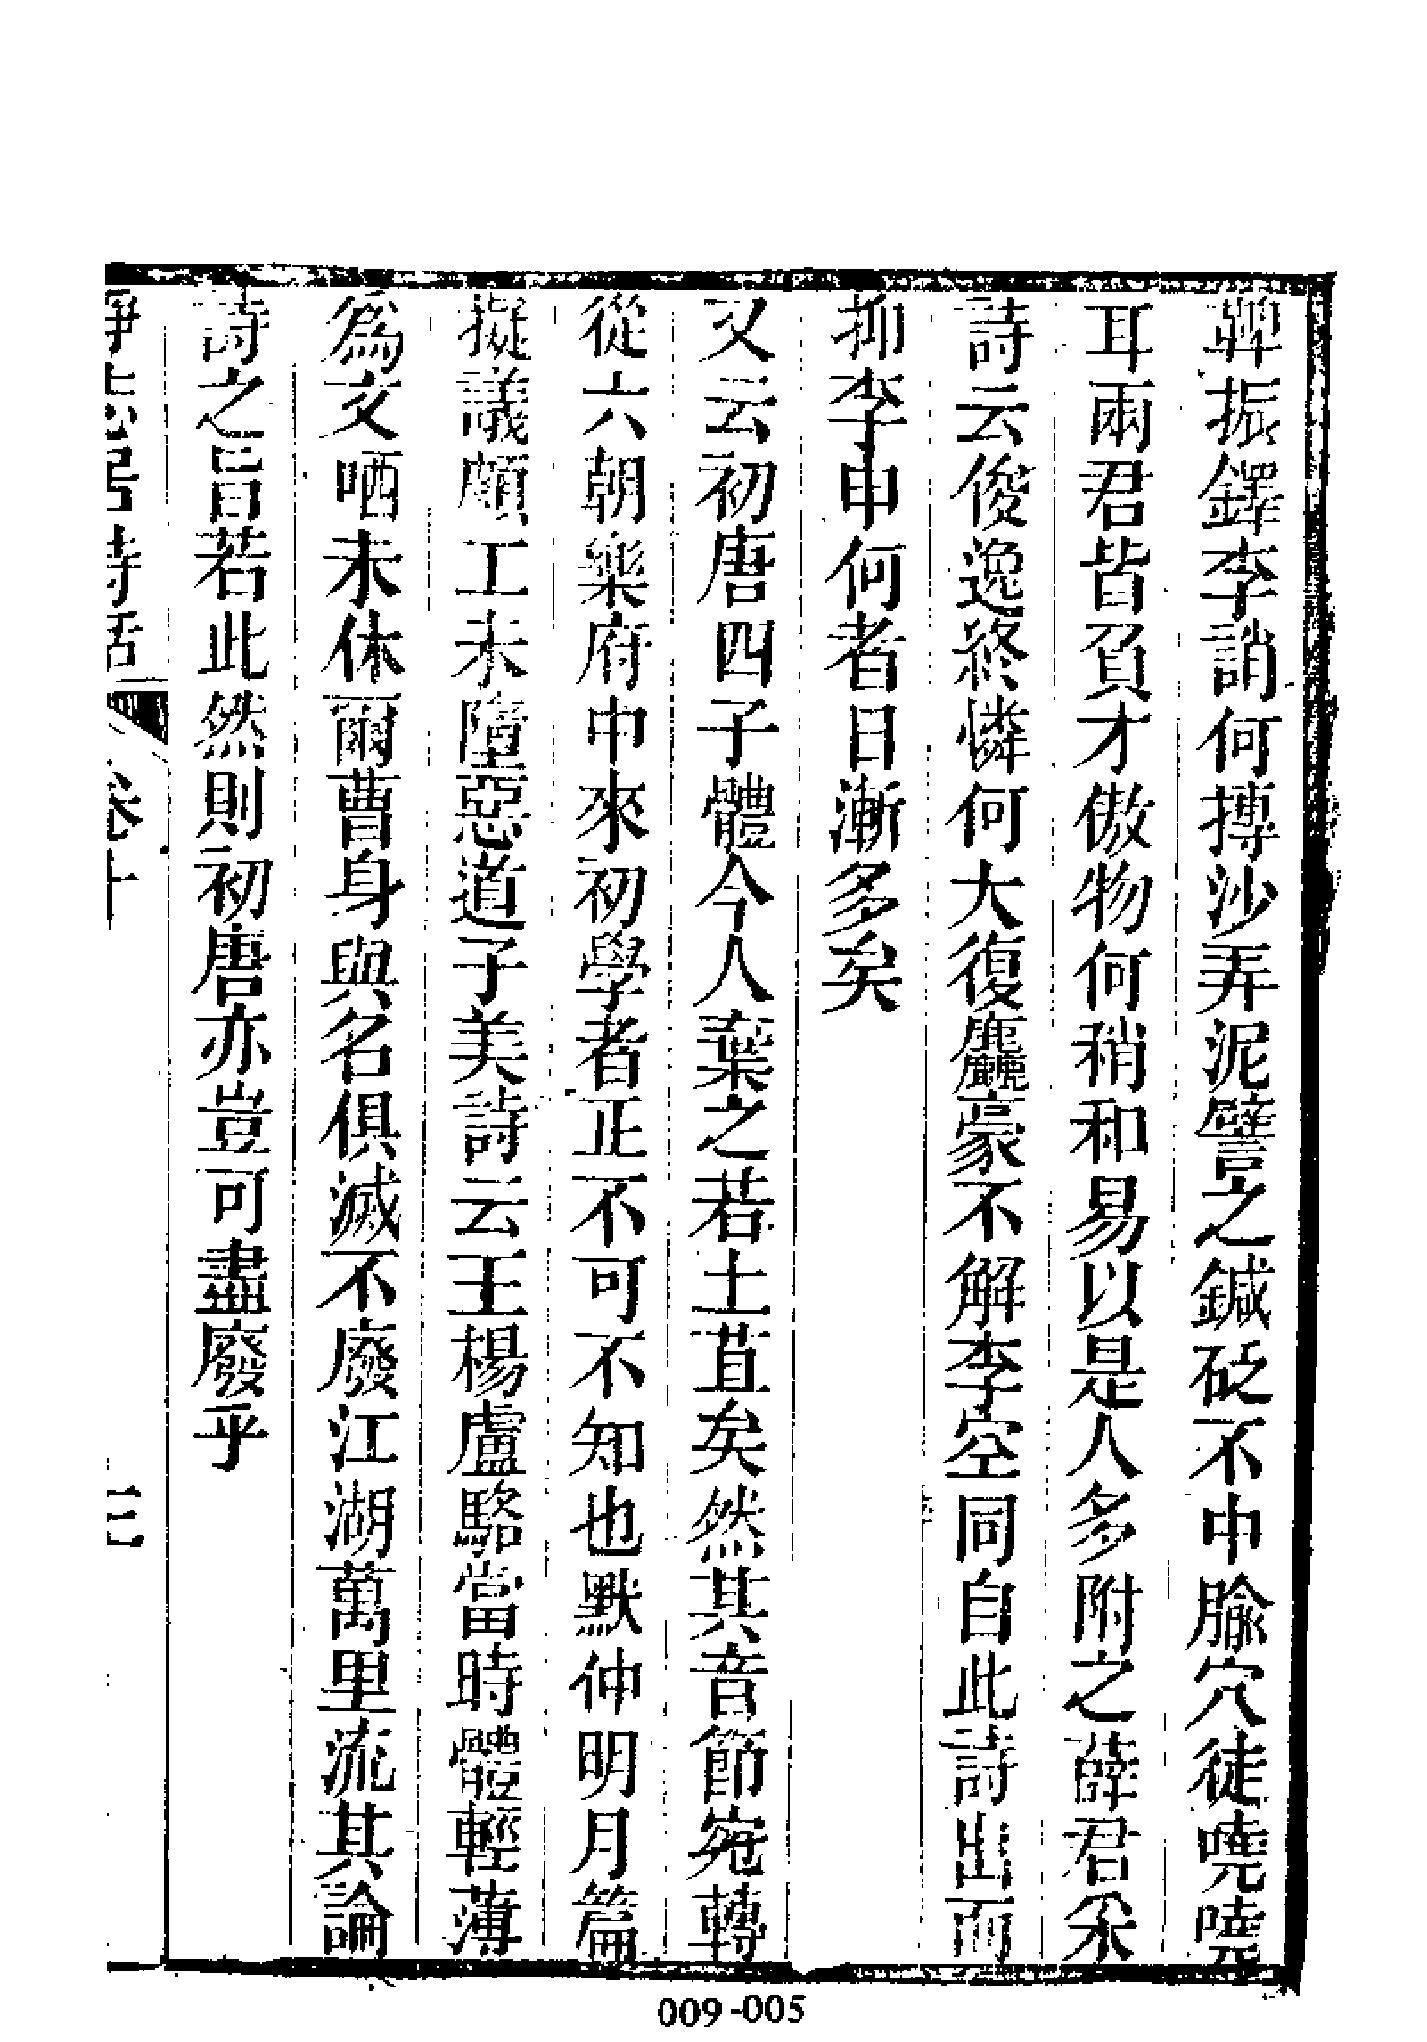 鞞振鐸李誚何摶沙弄泥譬之鍼砭不中腧穴徒嘵嘵
耳兩君皆負才傲物何稍和易以是人多附之薛君采
詩云俊逸終憐何大復麤豪不解李空同自此詩出而
抑李申何者日漸多矣
又云初唐四子體今人棄之若土苴矣然其音節宛轉
從六朝樂府中來初學者正不可不知也默仲明月篇
擬議頗工未墮惡道子美詩云王楊盧駱當時體輕薄
爲文哂未休爾曹身與名俱滅不廢江湖萬里流其論
詩之旨若此然則初唐亦豈可盡廢乎
靜志居詩話 卷十 三
009-005